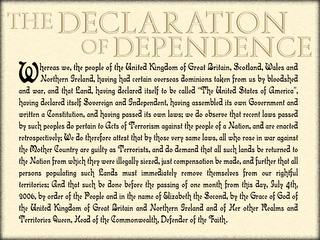 THE DECLARATION
OF DEPENDENCE
Whereas we, the people of the United Kingdom of Great Britain, Scotland, Wales and
Northern Ireland, having had certain overseas dominions taken from us by bloodshed
and war, and that Land, having declared itself to be called "The United States of America",
having declared itself Sovereign and Independent, having assembled its own Government and
written a Constitution, and having passed its own laws; we do observe that recent laws passed
by such peoples do pertain to Acts of Terrorism against the people of a Nation, and are enacted
retrospectively; We do therefore attest that by those very same laws, all who rose in war against
the Mother Country are guilty as Terrorists, and do demand that all such lands be returned to
the Nation from which they were illegally siezed, just compensation be made, and further that all
persons populating such Lands must immediately remove themselves from our rightful
territories; And that such be done before the passing of one month from this day, July 4th,
2006, by order of the People and in the name of Elizabeth the Second, by the Grace of God of
the United Kingdom of Great Britain and Northern Ireland and of Her other Realms and
Territories Queen, Head of the Commonwealth, Defender of the Faith.